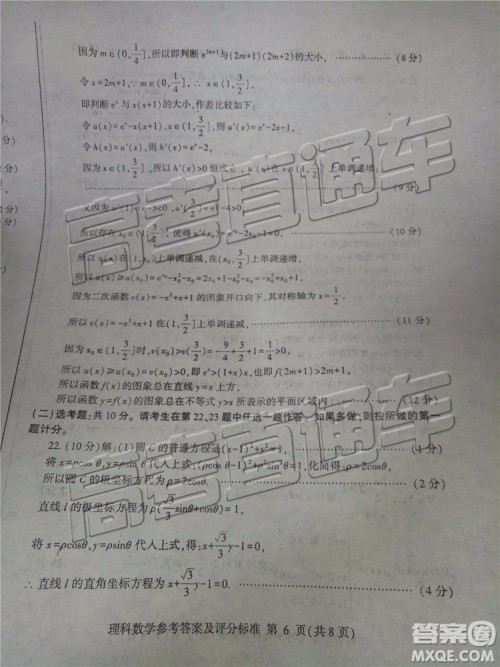 因为 m∈(0,1/4],所以即判断 e^{2m+1}与(2m+1)(2m+2)的大小, (8分)
令 x=2m+1,∵m∈(0,1/4],∴x∈(1,3/2],
即判断 e^x 与 x(x+1)的大小,作差比较如下:
令 u(x)=e^x-x(x+1),x∈(1,3/2],则 u'(x)=e^x-2x-1.
令 h(x)=u'(x),则 h'(x)=e^x-2.
因为 x∈(1,3/2],所以 h'(x)>0 恒成立, 上单调递增; (9分)
又因为 u'(1)=e-3<0,
所以存在 x₀∈(1,3/2],使得 u'(x₀)=e^{x₀}-2x₀-1=0. (10分)
所以 u(x)在(1,x₀)上单调递减,在(x₀,3/2]上单调递增,
所以 u(x)≥u(x₀)=e^{x₀}-x₀²-x₀=2x₀+1-x₀²-x₀=-x₀²+x₀+1.
因为二次函数 v(x)=-x²+x+1 的图象开口向下,其对称轴为 x=1/2,
所以 v(x)=-x²+x+1 在(1,3/2]上单调递减, (11分)
因为 x₀∈(1,3/2]时,v(x₀)>v(3/2)=-9/4+3/2+1=1/4>0,
所以 函数 f(x)的图象总在直线 y=x 上方.
所以函数 f(x)的图象总在不等式 y>x 所表示的平面区域内. (12分)
(二)选考题:共10分。请考生在第22、23题中任选一题作答。如果多做,则按所做的第一
题计分。
22.(10分)解:(1)圆 C 的普通方程是(x-1)²+y²=1, (1分)
将 x=ρcosθ,y=ρsinθ 代入上式:(ρcosθ-1)²+ρ²sin²θ=1,化简得:ρ=2cosθ,
所以圆 C 的极坐标方程为 ρ=2cosθ. (2分)
直线 l 的极坐标方程为 ρ(√3/3 sinθ+cosθ)=1,
将 x=ρcosθ,y=ρsinθ 代人上式,得:x+√3/3 y-1=0,
∴ 直线 l 的直角坐标方程为 x+√3/3 y-1=0. (4分)
理科数学参考答案及评分标准 第 6 页(共8页)
高考直通车
高考直通车
高考直通车
答案圈
MXQE.COM